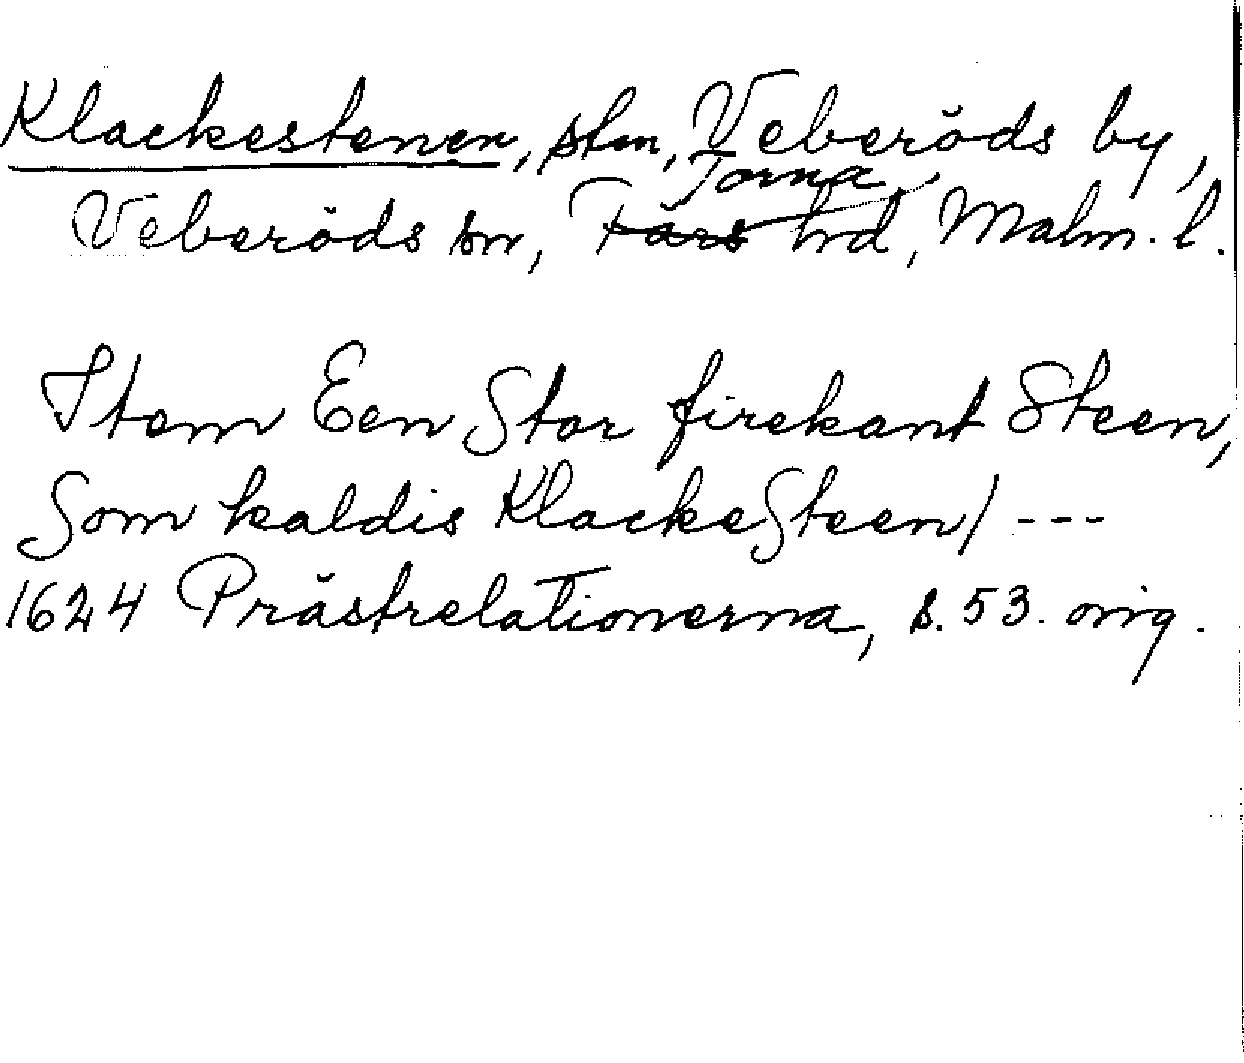 Klackestenen, stm, Veberöds by,
Torna
Veberöds sn, Färs hd, Malm. l.
Item Een Stor firekant Steen,
Som kaldis KlackeSteen/ ---
1624 Prästrelationerna, s. 53. orig.